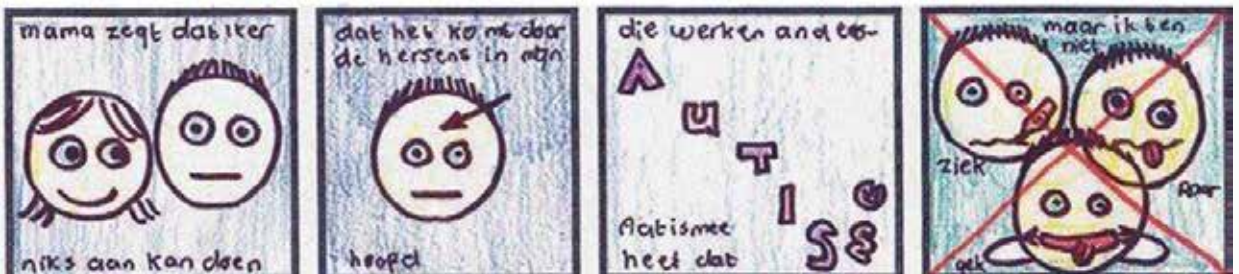 mama zegt dat ik er
niks aan kan doen
dat het komt door
de hersens in mijn
hoofd
die werken anders
AUTISME
Autismee
heet dat
maar ik ben
niet
ziek
Raar
gek